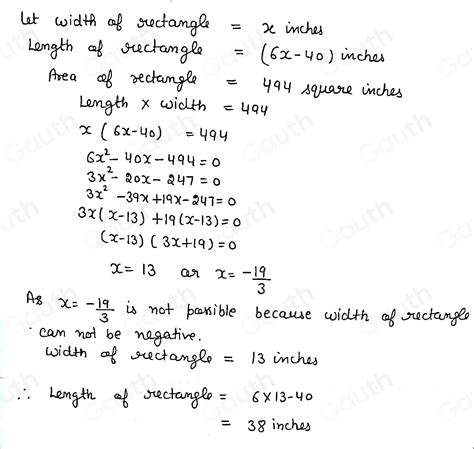 Let width of rectangle = x inches
Length of rectangle = (6x-40) inches
Area of rectangle = 494 square inches
Length × width = 494
x (6x-40) = 494
6x²-40x-494=0
3x²-20x-247=0
3x²-39x+19x-247=0
3x(x-13)+19(x-13)=0
(x-13)(3x+19)=0
x=13 or x=-19/3
As x=-19/3 is not possible because width of rectangle
can not be negative.
width of rectangle = 13 inches
∴ Length of rectangle = 6×13-40
= 38 inches